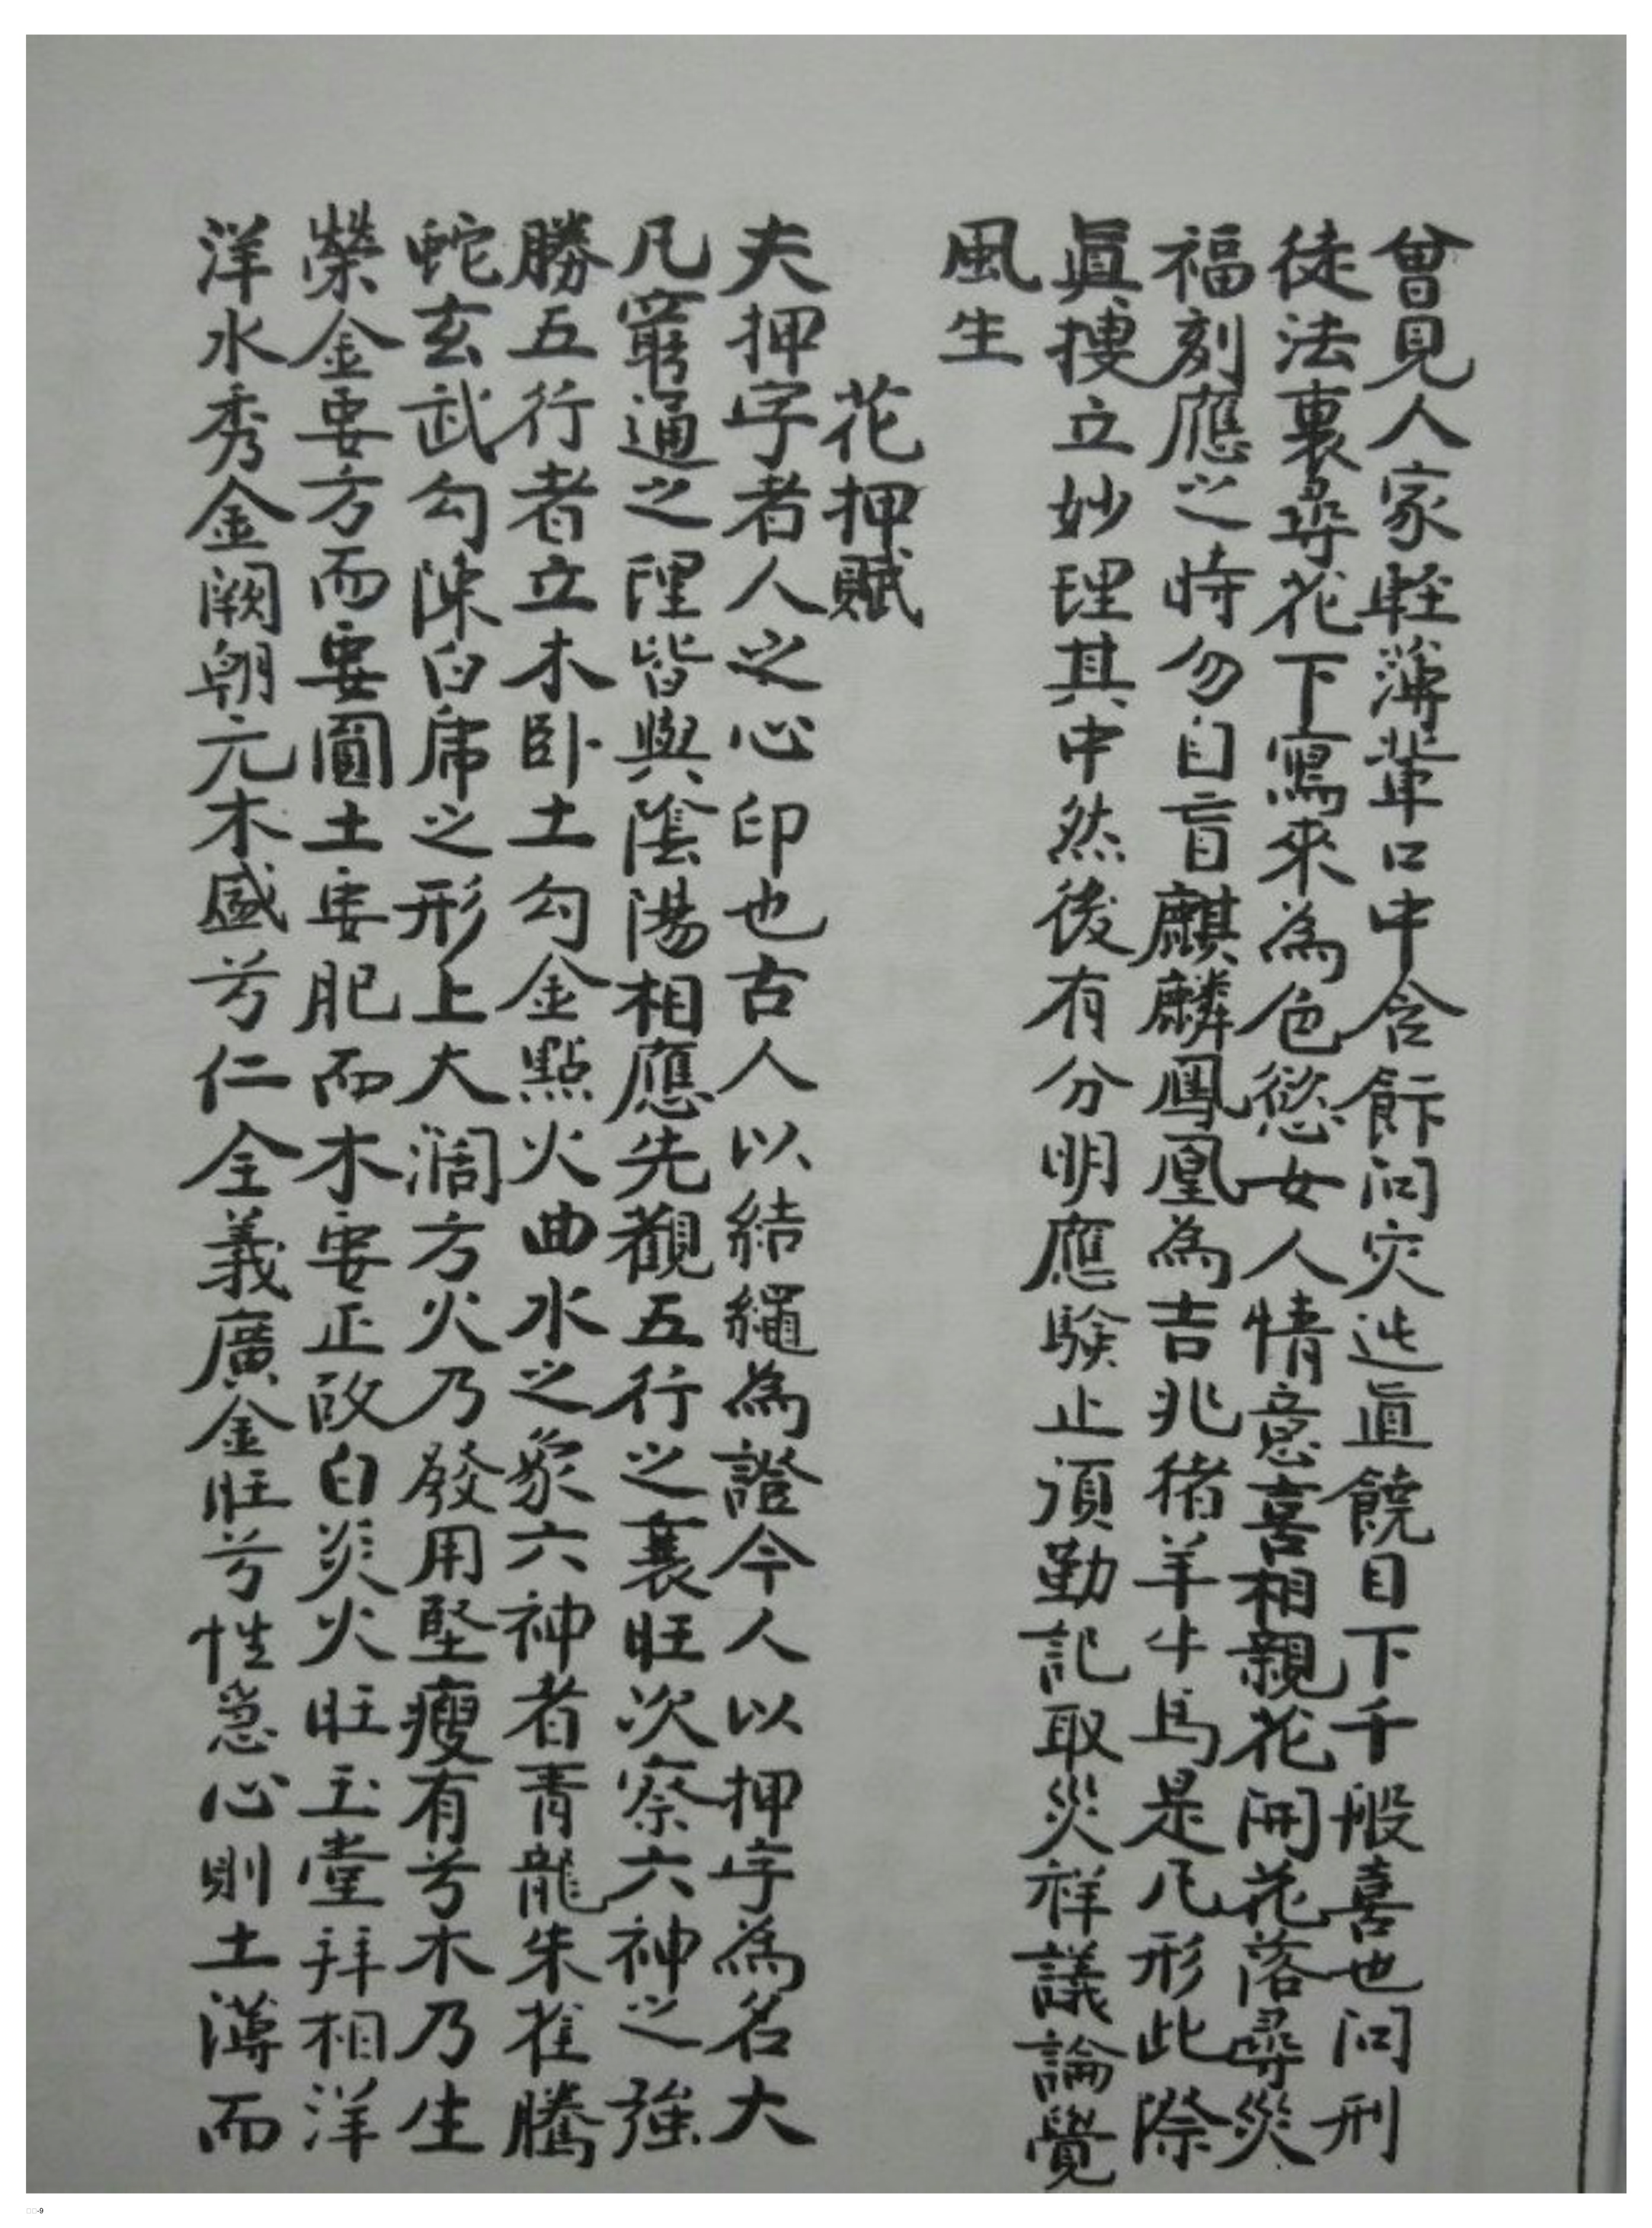 曾見人家輕薄輩口中含餅问灾迍直饒目下千般喜也问刑
徒法裏尋花下寫來為色慾女人情意喜相親花開花落尋災
福刻應之時勿自盲麒麟鳳凰為吉兆猪羊牛馬是凡形此際
眞搜立妙理其中然後有分明應驗止須勤記取災祥議論覺
風生
花押賦
夫押字者人之心印也古人以結繩為證今人以押字為名大
凡窮通之理皆與陰陽相應先觀五行之衰旺次察六神之強
勝五行者立木卧土勾金點火曲水之象六神者青龍朱雀騰
蛇玄武勾陳白虎之形上大濶方火乃發用堅瘦有兮木乃生
榮金要方而要圓土要肥而木要正故白炎火旺玉堂拜相洋
洋水秀金闕朝元木盛兮仁全義廣金旺兮性急心則土薄而
-9